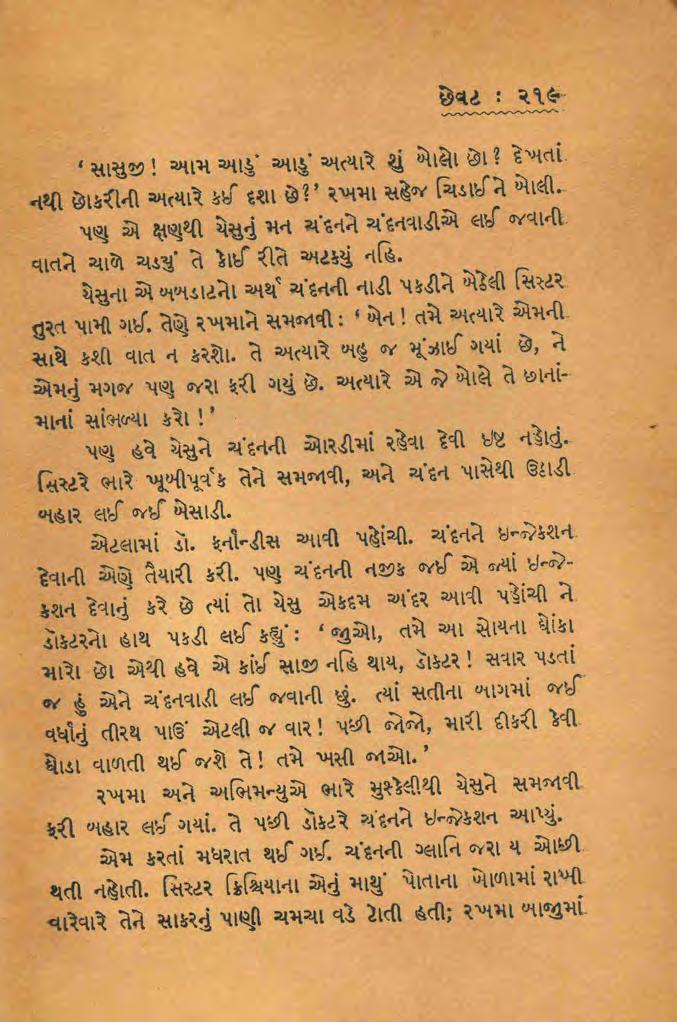 છેવટ : ૨૧૯
‘ સાસુજી ! આમ આડું આડું અત્યારે શું બોલો છો ? દેખતાં
નથી છોકરીની અત્યારે કઈ દશા છે ?’ રખમા સહેજ ચિડાઈને બોલી.
પણ એ ક્ષણથી યેસુનું મન ચંદનને ચંદનવાડીએ લઈ જવાની
વાતને ચાળે ચડ્યું તે કોઈ રીતે અટક્યું નહિ.
યેસુના એ બબડાટનો અર્થ ચંદનની નાડી પકડીને બેઠેલી સિસ્ટર
તુરત પામી ગઈ. તેણે રખમાને સમજાવી : ‘ બેન ! તમે અત્યારે એમની
સાથે કશી વાત ન કરશો. તે અત્યારે બહુ જ મૂંઝાઈ ગયાં છે, ને
એમનું મગજ પણ જરા ફરી ગયું છે. અત્યારે એ જે બોલે તે છાનાં-
માનાં સાંભળ્યા કરો !’
પણ હવે યેસુને ચંદનની ઓરડીમાં રહેવા દેવી ઇષ્ટ નહોતું.
સિસ્ટરે ભારે ખૂબીપૂર્વક તેને સમજાવી, અને ચંદન પાસેથી ઉઠાડી
બહાર લઈ જઈ બેસાડી.
એટલામાં ડૉ. ફર્નાન્ડીસ આવી પહોંચી. ચંદનને ઇન્જેક્શન
દેવાની એણે તૈયારી કરી. પણ ચંદનની નજીક જઈ એ જ્યાં ઇન્જે-
ક્શન દેવાનું કરે છે ત્યાં તો યેસુ એકદમ અંદર આવી પહોંચી ને
ડૉક્ટરનો હાથ પકડી લઈ કહ્યું : ‘ જુઓ, તમે આ સોયના ઘોંકા
મારો છો એથી હવે એ કાંઈ સાજી નહિ થાય, ડૉક્ટર ! સવાર પડતાં
જ હું એને ચંદનવાડી લઈ જવાની છું. ત્યાં સતીના બાગમાં જઈ
વર્ધાનું તીરથ પાઉં એટલી જ વાર ! પછી જોજો, મારી દીકરી કેવી
ઘોડા વાળતી થઈ જશે તે ! તમે ખસી જાઓ.’
રખમા અને અભિમન્યુએ ભારે મુશ્કેલીથી યેસુને સમજાવી
ફરી બહાર લઈ ગયાં. તે પછી ડૉક્ટરે ચંદનને ઇન્જેક્શન આપ્યું.
એમ કરતાં મધરાત થઈ ગઈ. ચંદનની ગ્લાનિ જરા ય ઓછી
થતી નહોતી. સિસ્ટર ક્રિશ્ચિયાના એનું માથું પોતાના ખોળામાં રાખી
વારેવારે તેને સાકરનું પાણી ચમચા વડે ટોતી હતી; રખમા બાજુમાં